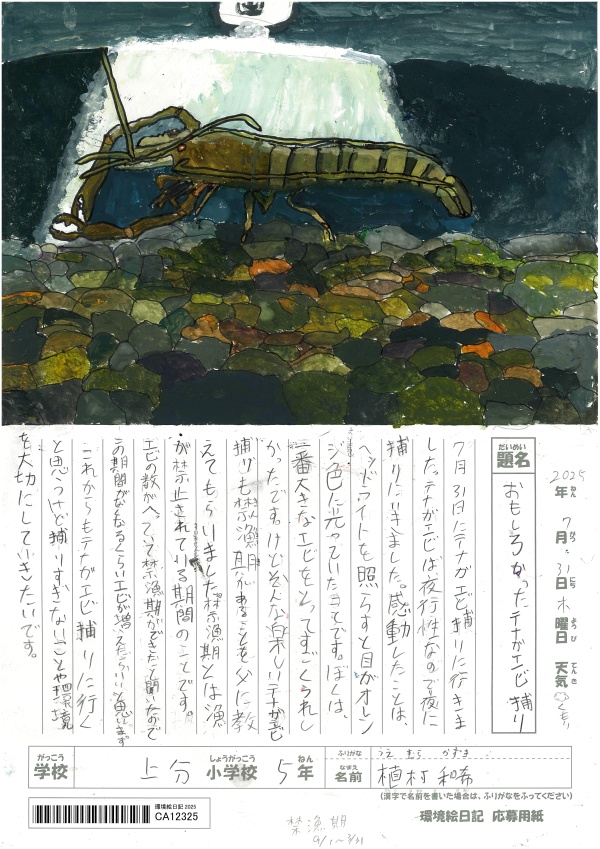 2025年 7月 31日 木曜日 天気 くもり
ねん がつ にち ようび てんき
だいめい
題名
おもしろかったテナガエビ捕り
7月31日にテナガエビ捕りに行きま
した。テナガエビは夜行性なので夜に
捕りにいきました。感動したことは、
ヘッドライトを照らすと目がオレン
ジ色に光っていた点です。ぼくは、
一番大きなエビをとってすごくうれし
かったです。けどそんな楽しいテナガエビ
捕りも禁漁期間があることを父に教
えてもらいました。禁漁期とは漁
が禁止されている期間のことです。
エビの数がへっていて禁漁期ができたって聞いたので
この期間がなくなるくらいエビが増えたらいいと思います。
これからもテナガエビ捕りに行く
と思うけど捕りすぎないことや環境
を大切にしていきたいです。
がっこう しょうがっこう ねん
学校 上分 小学校 5年
ふりがな うえ むら かずま
なまえ
名前 植村 和希
(漢字で名前を書いた場合は、ふりがなをふってください)
環境絵日記 2025
CA12325
環境絵日記 応募用紙
禁漁期
9/1〜3/31